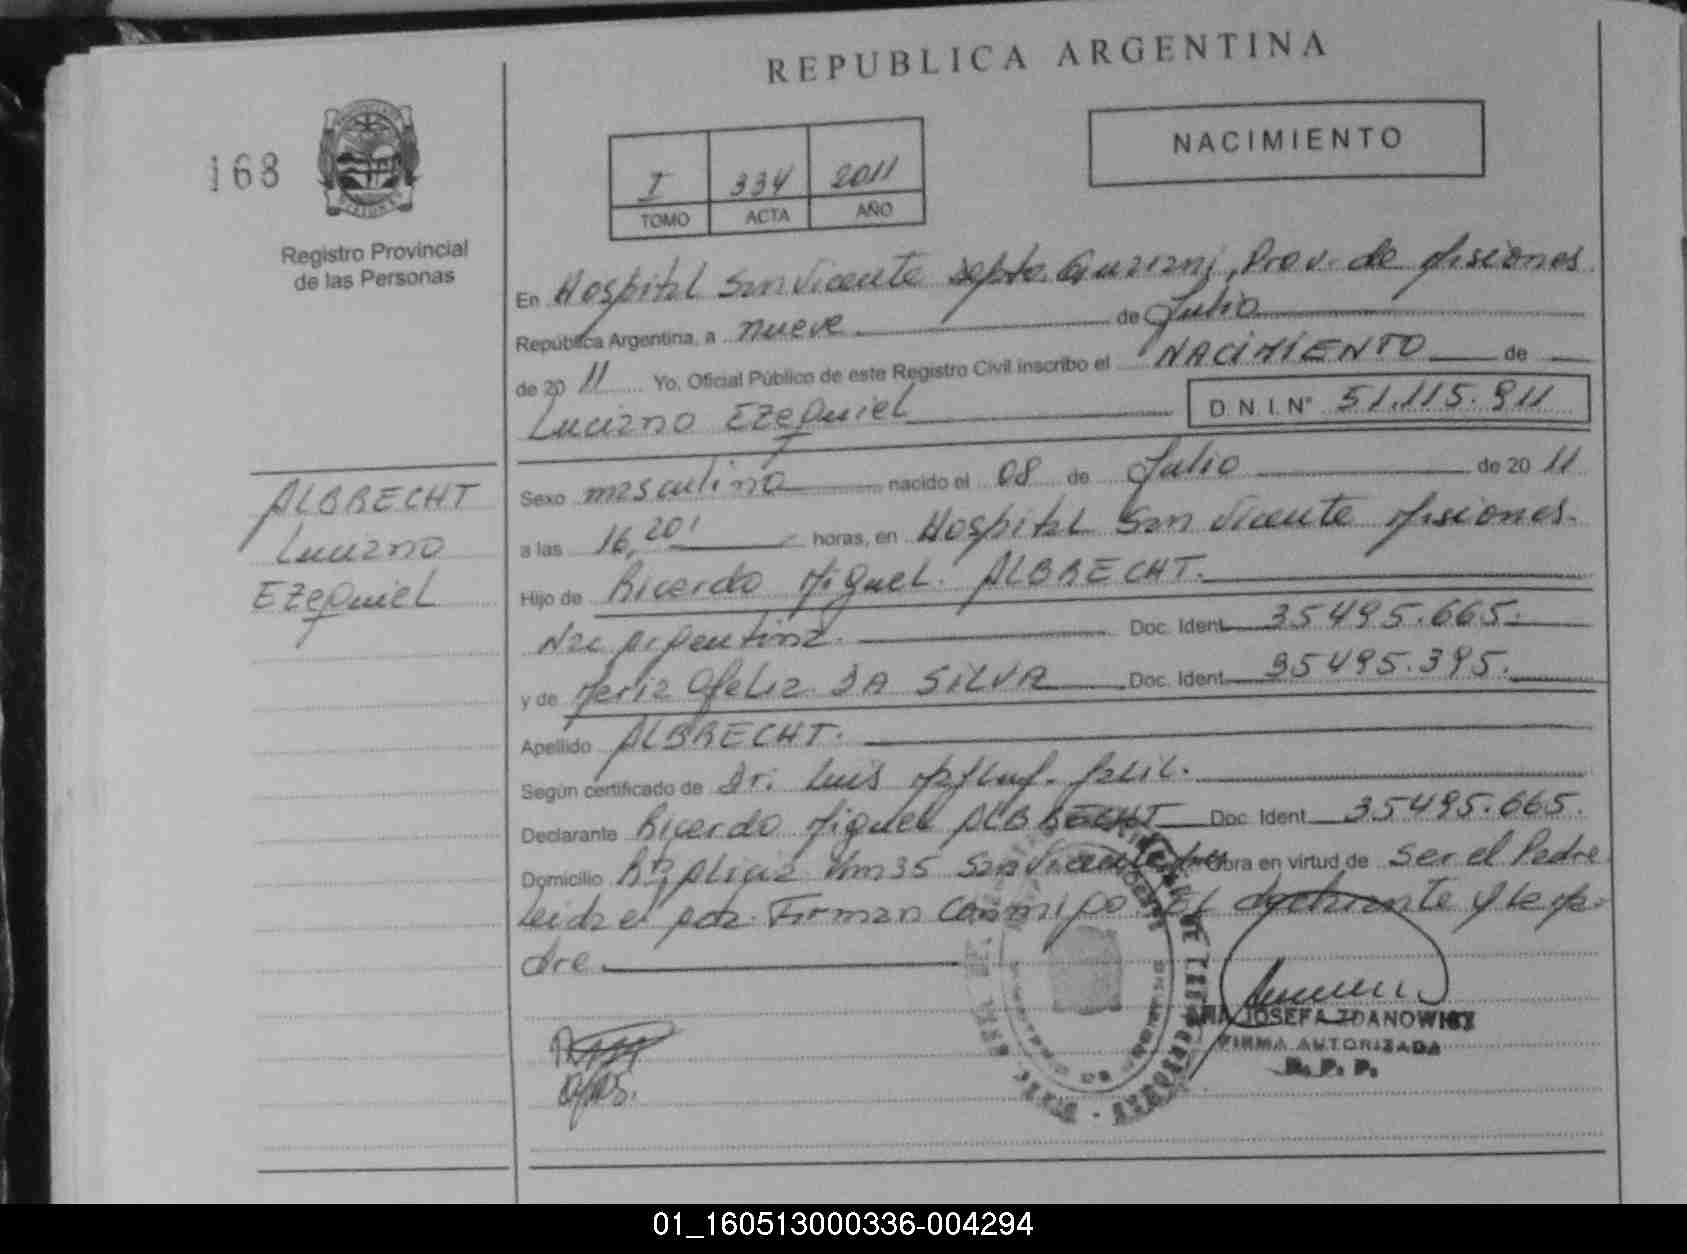 REPUBLICA ARGENTINA
168
Registro Provincial
de las Personas
I 334 2011
TOMO ACTA AÑO
NACIMIENTO
En Hospital San Vicente Depto. Guarani, Prov. de Misiones
República Argentina, a nueve de Julio
de 20 11 Yo, Oficial Público de este Registro Civil inscribo el NACIMIENTO de
Luciano Ezequiel D.N.I. N° 51.115.911
ALBRECHT
Luciano
Ezequiel
Sexo masculino nacido el 08 de Julio de 20 11
a las 16,20' horas, en Hospital San Vicente Misiones.
Hijo de Ricardo Miguel ALBRECHT.
Nac Argentina. Doc. Ident. 35495.665.
y de Maria Ofelia DA SILVA Doc. Ident. 35495.395.
Apellido ALBRECHT.
Según certificado de Dr. Luis
Declarante Ricardo Miguel ALBRECHT Doc. Ident. 35495.665.
Domicilio Km 35 San Vicente Obra en virtud de Ser el Padre
Leida el acta Firman Conmigo El declarante y la ma-
dre
ANA JOSEFA ZDANOWICZ
FIRMA AUTORIZADA
R. P. P.
01_160513000336-004294